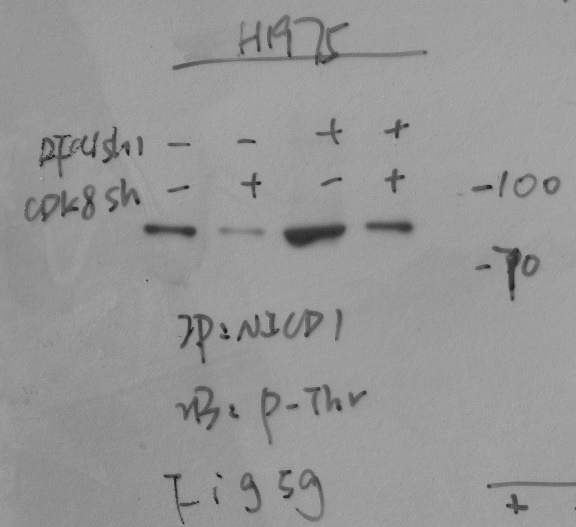 H1975
- - + +
CDK8 sh - + - +
-100
-70
IP: NICD1
IB: p-Thr
Fig 5g
+